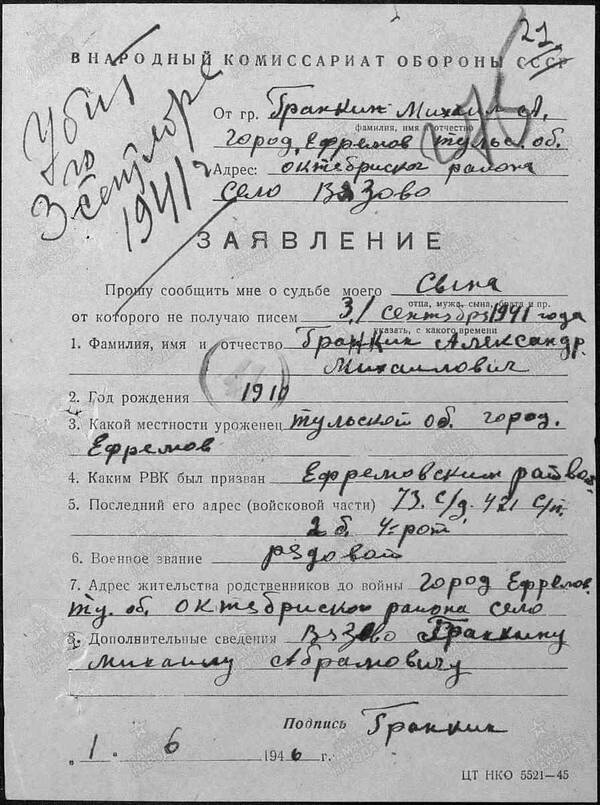 21
В НАРОДНЫЙ КОМИССАРИАТ ОБОРОНЫ СССР
Убит
3 сентября
1941 г
От гр. Гранкин Михаил А.
фамилия, имя и отчество
город Ефремов Тульс. об.
Адрес: октебриског района
село Вязово
ЗАЯВЛЕНИЕ
Прошу сообщить мне о судьбе моего Сына
отца, мужа, сына, брата и пр.
от которого не получаю писем 3/ Сентебря 1941 года
указать, с какого времени
1. Фамилия, имя и отчество Гранкин Александр.
Михаилович
2. Год рождения 1910
3. Какой местности уроженец Тульской об. город.
Ефремов
4. Каким РВК был призван Ефремовским
5. Последний его адрес (войсковой части) 73. с/д. 471 с/п.
2 б. 4 рот
6. Военное звание рядовой
7. Адрес жительства родственников до войны город Ефремов
Ту. об. октебриског района село
8. Дополнительные сведения Вязово Гранкину
Михаилу Абрамовичу
Подпись Гранкин
" 1 " 6 1946 г.
ЦТ НКО 5521—45